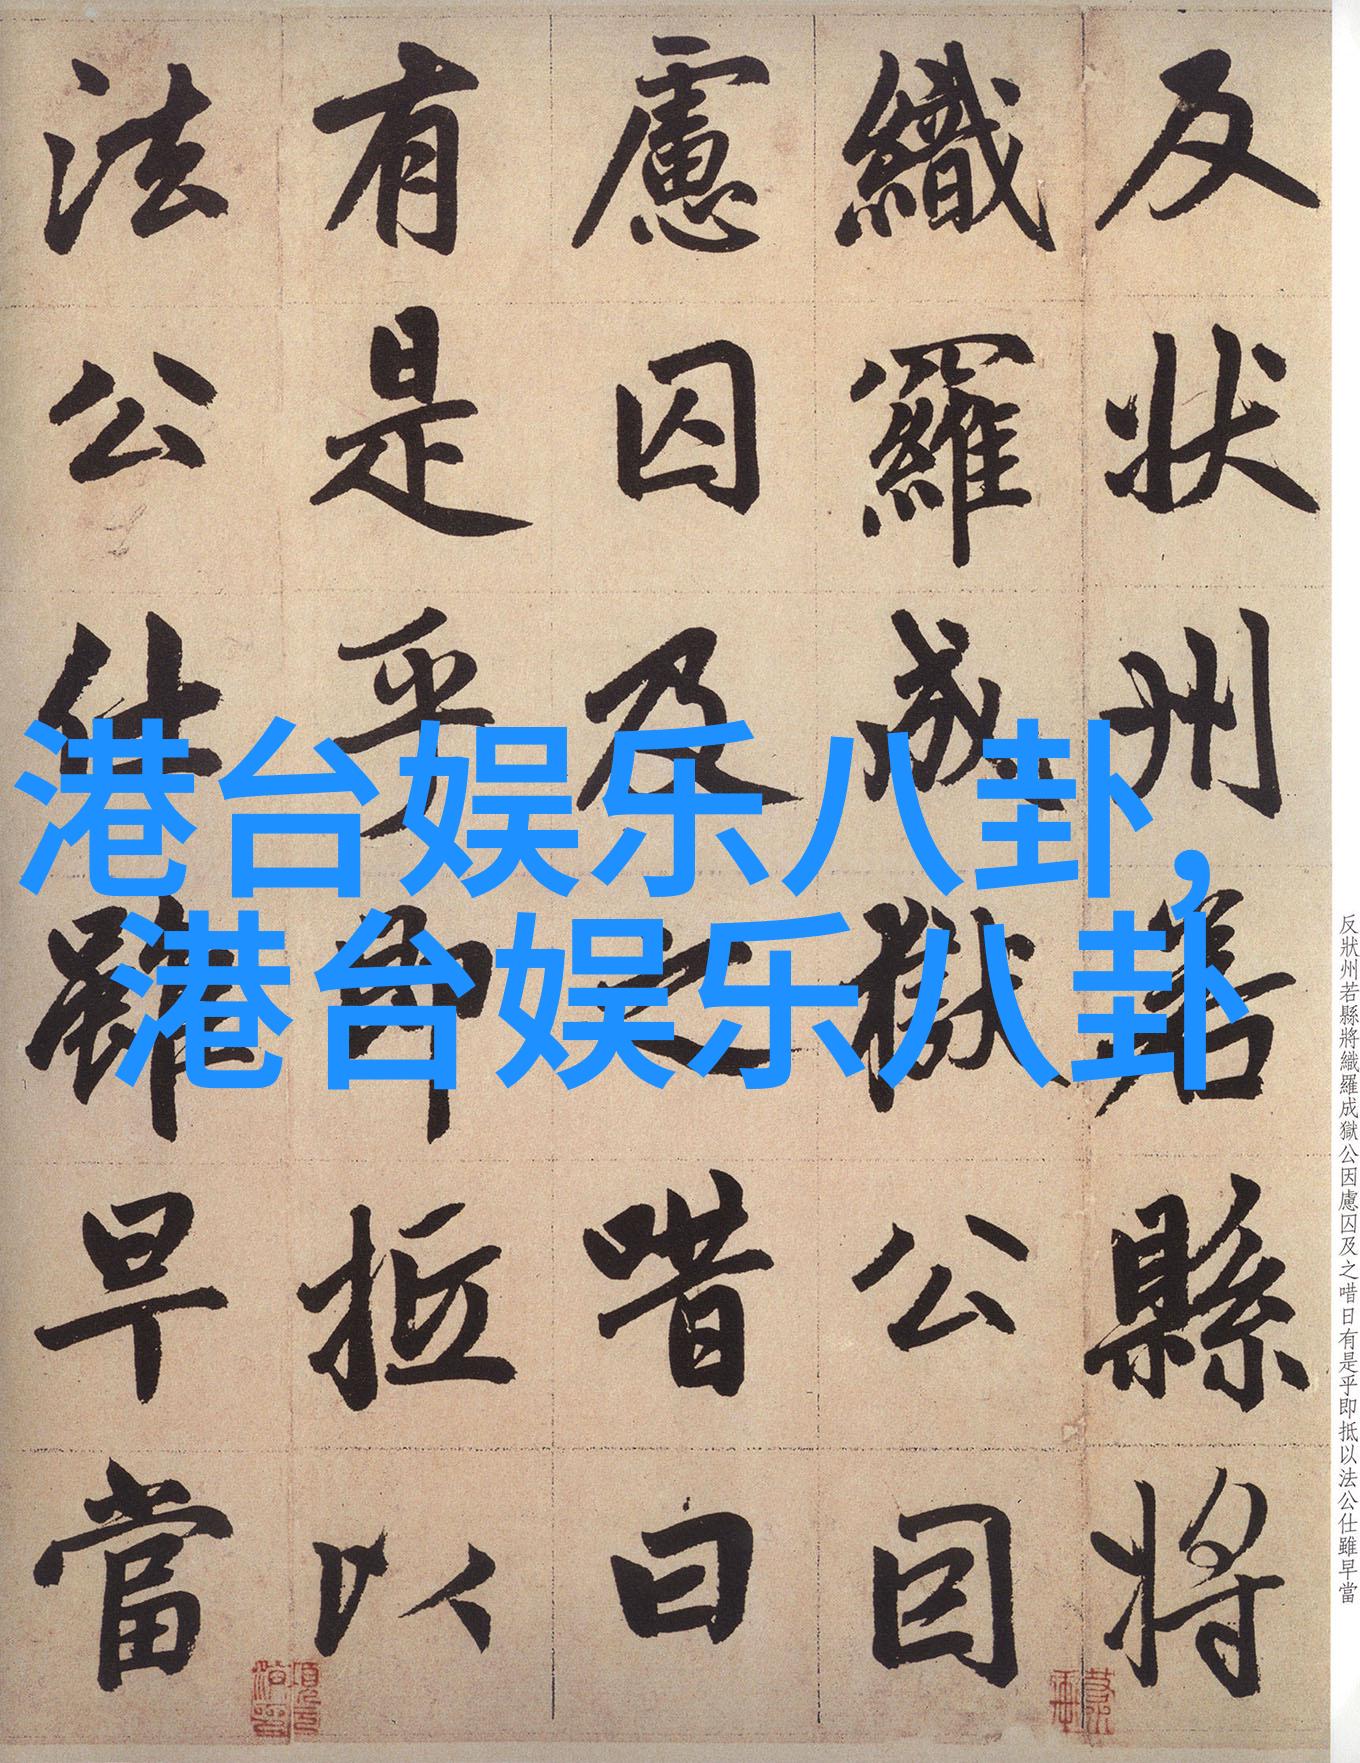 反状州若縣將
織羅成獄公因
慮囚及之唶曰
有是乎即抵以
法公仕雖早當
港台娱乐八卦，
港台娱乐八卦
反狀州若縣將織羅成獄公因慮囚及之唶日有是乎即抵以法公仕雖早當